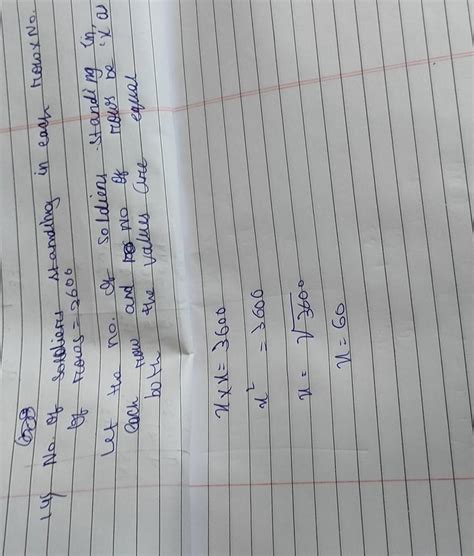 No. of soldiers standing in each row x No.
of rows = 3600
Let the no. of soldiers standing in
each row and no of rows be 'x' as
both the values are equal
x × x = 3600
x² = 3600
x = √3600
x = 60